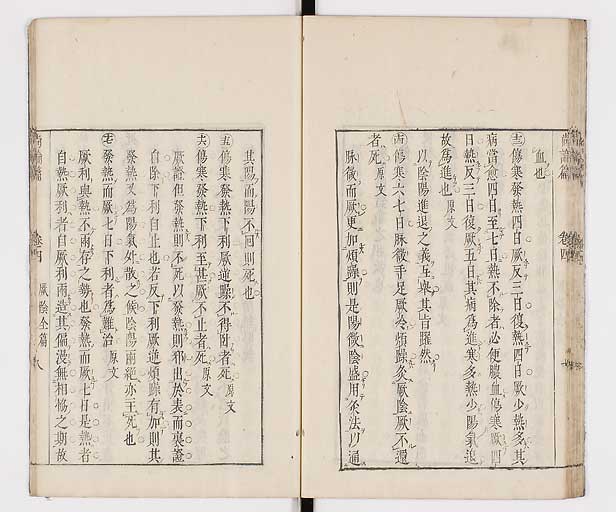 血也
㊂傷寒發熱四日厥反三日復熱四日厥少熱多其
病當愈四日至七日熱不除者必便膿血傷寒厥四
日熱反三日復厥五日其病為進寒多熱少陽氣退
故為進也原文
以陰陽進退之義互舉其旨躍然
傷寒六七日脉微手足厥冷煩躁灸厥陰厥不還
者死原文
脉微而厥更加煩躁則是陽微陰盛用灸法以通
其陽而陽不回則死也
傷寒發熱下利厥逆躁不得臥者死原文
傷寒發熱下利至甚厥不止者死原文
厥證但發熱則不死以發熱則邪出於表而裏證
自除下利自止也若反下利厥逆煩躁有加則其
發熱又為陽氣外散之候陰陽兩絕亦主死也
發熱而厥七日下利者為難治原文
厥利與熱不兩存之勢也發熱而厥七日是熱者
自熱厥利者自厥利兩造其偏漫無相協之期故
尚論篇
卷四
厥陰全篇
八
尚論篇
卷四